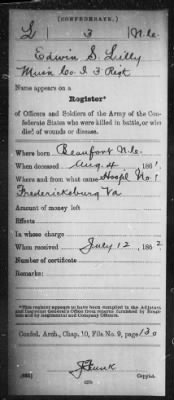 (CONFEDERATE.)
L 3 N.C.
Edwin S. Lilly
Musn Co. I 3 Regt
Name appears on a
Register*
of Officers and Soldiers of the Army of the Con-
federate States who were killed in battle, or who
died of wounds or disease.
Where born Beaufort N.C.
When deceased Aug. 4, 186
Where and from what cause Hospl No. 1
Fredericksburg Va
Amount of money left
Effects
In whose charge
When received July 12, 1862
Number of certificate
Remarks:
*This register appears to have been compiled in the Adjutant
and Inspector General's Office from returns furnished by Hospi-
tals and by Regimental and Company Officers.
Confed. Arch., Chap. 10, File No. 9, page 130
J Funk
Copyist.